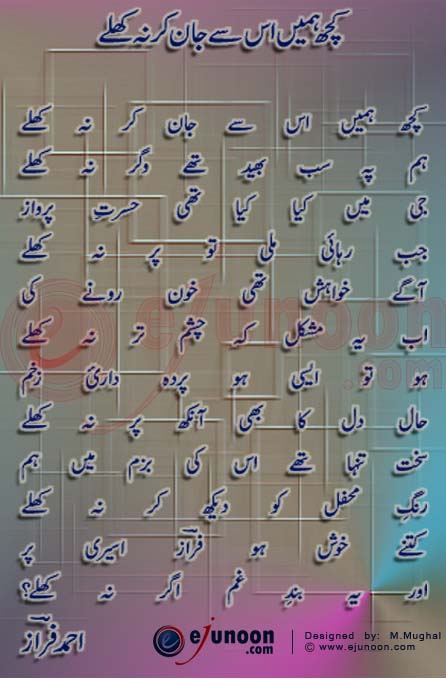 کچھ ہمیں اس سے جان کر نہ کھلے
کچھ ہمیں اس سے جان کر نہ کھلے
ہم پہ سب بھید تھے وگر نہ کھلے
جی میں کیا کیا تھی حسرتِ پرواز
جب رہائی ملی تو پر نہ کھلے
آگے خواہش تھی خون رونے کی
اب یہ مشکل کہ چشم تر نہ کھلے
ہو تو ایسی ہو پردہ داریٔ زخم
حال دل کا بھی آنکھ پر نہ کھلے
سخت تنہا تھے اس کی بزم میں ہم
رنگِ محفل کو دیکھ کر نہ کھلے
کتنے خوش ہو فرازؔ اسیری پر
اور یہ بندِ غم اگر نہ کھلے؟
احمد فرازؔ
ejunoon.com
ejunoon.com
Designed by: M.Mughal
© www.ejunoon.com